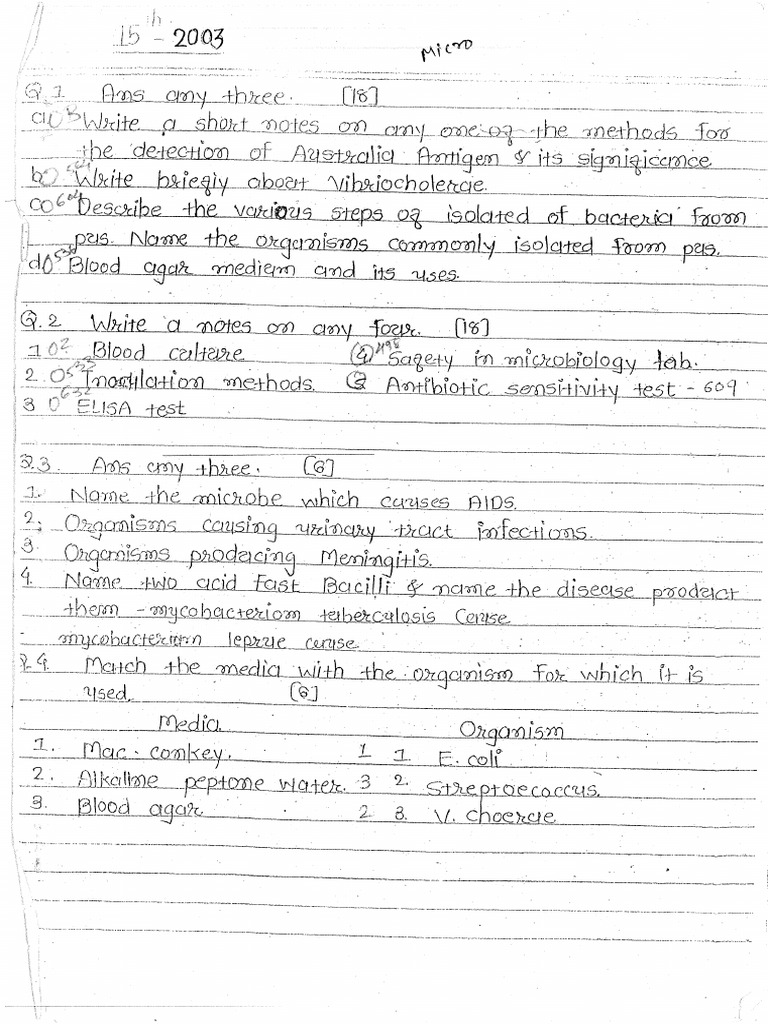 15th - 2003
Micro
Q.1 Ans any three. [18]
a) Write a short notes on any one of the methods for
the detection of Australia Antigen & its significance
b) Write briefly about Vibriocholerae.
c) Describe the various steps of isolated of bacteria from
pus. Name the organisms commonly isolated from pus.
d) Blood agar medium and its uses.
Q.2 Write a notes on any four. [18]
1 Blood culture (4) Safety in microbiology lab.
2. Inoculation methods. Antibiotic sensitivity test - 609
3 ELISA test
Q.3. Ans any three. [6]
1. Name the microbe which causes AIDS.
2. Organisms causing urinary tract infections.
3. Organisms producing Meningitis.
4. Name two acid fast Bacilli & name the disease product
them - mycobacteriom tuberculosis Cause
mycobacterium leprae cause
Q.4. Match the media with the organism for which it is
used. [6]
Media. Organism
1. Mac. conkey. 1 1. E. coli
2. Alkaline peptone water. 3 2. Streptococcus.
3. Blood agar 2 3. V. choerae